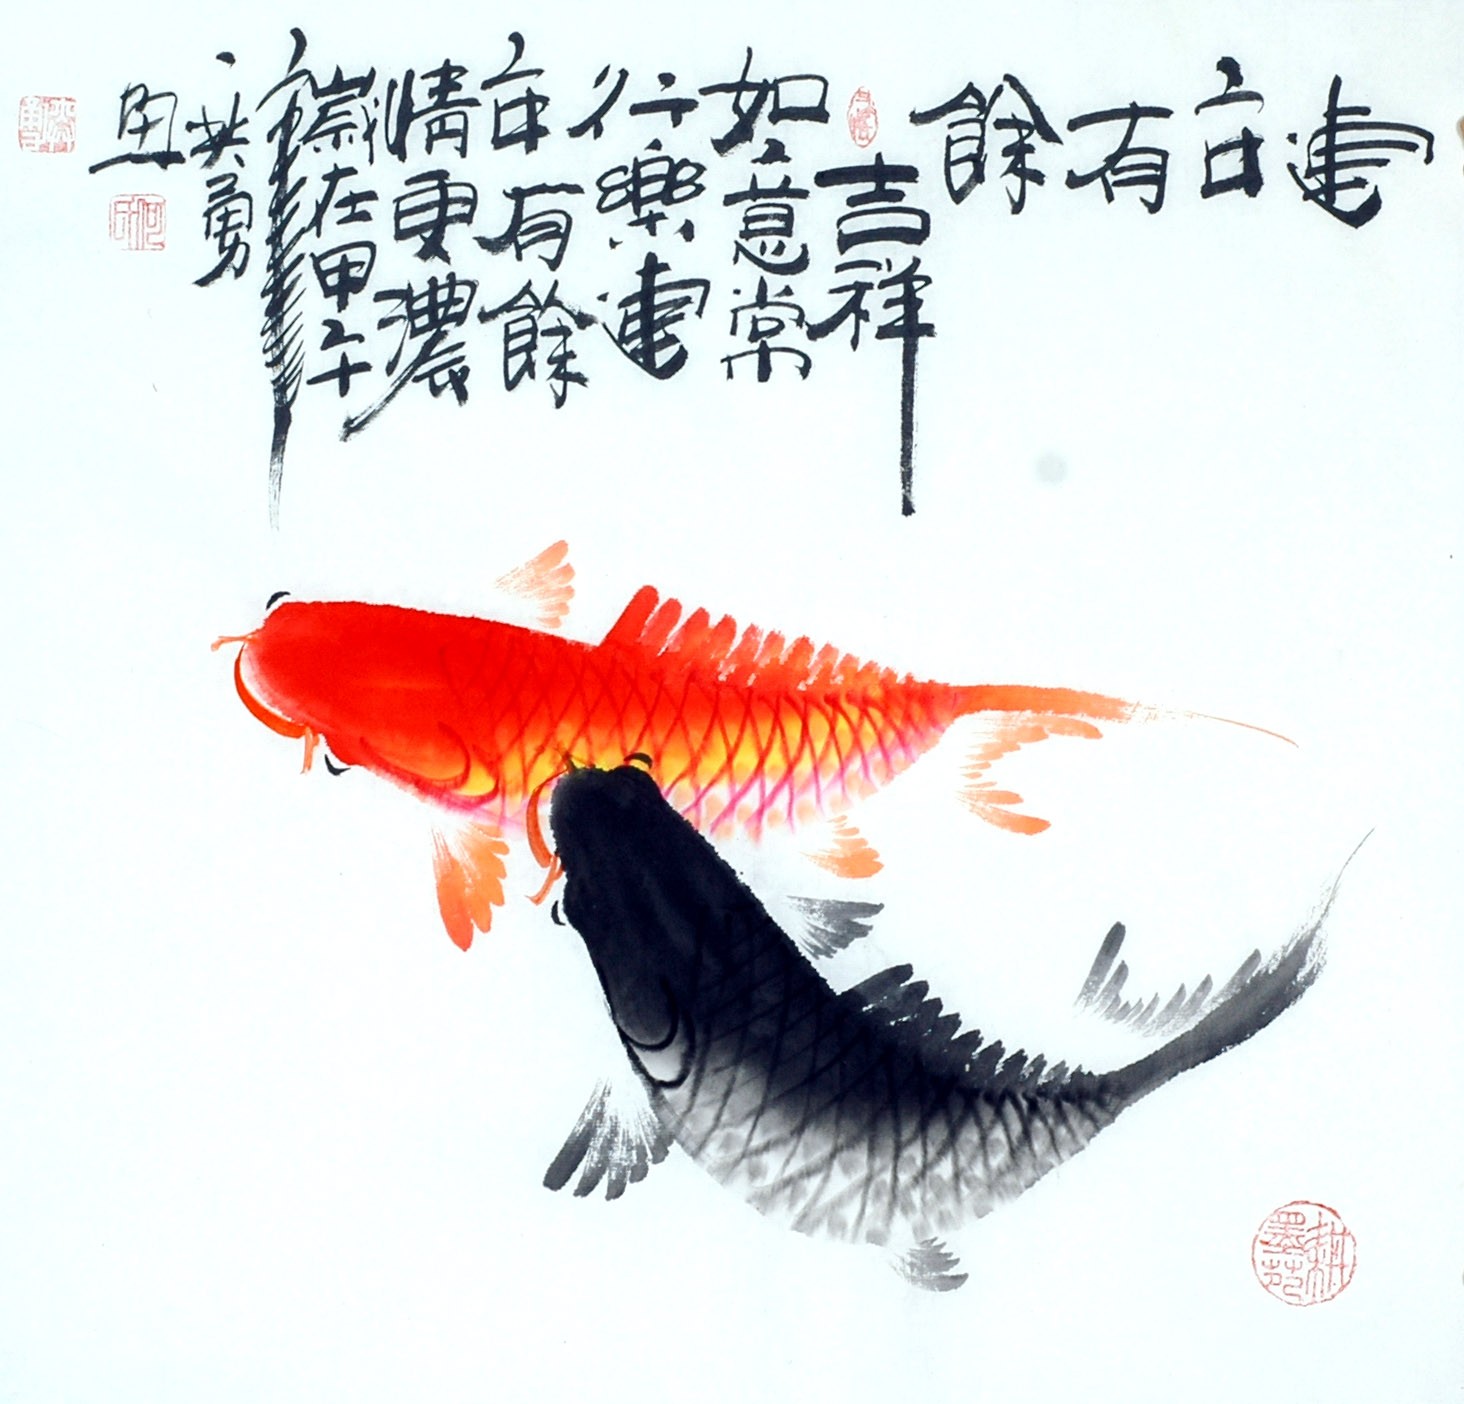 連年有餘
吉祥
如意常
行樂連
年有餘
情更濃
歲在甲午
年
共勇